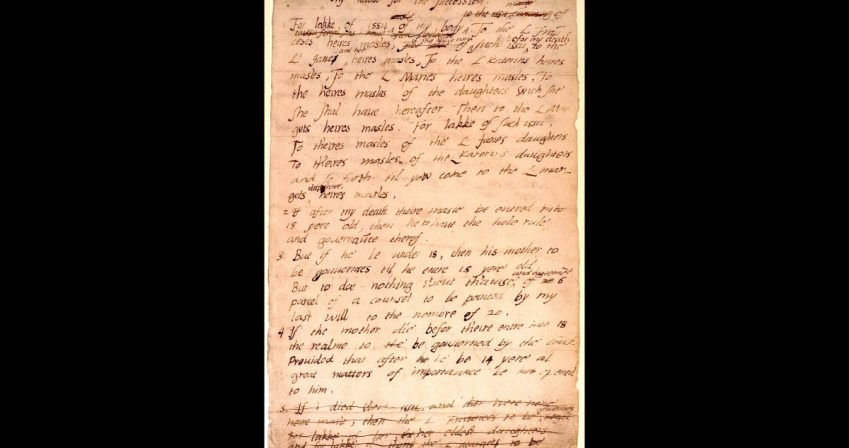 My devise for the succession.
For lakke of issu of my body To the L Fran
ceses heires masles, For lakke of such issu, to the
L' Janes and her heires masles, To the L Katerins heires
masles, To the L Maries heires masles, To
the heires masles of the daughters wich she
she shal have hereafter. Then to the L Mar
gets heires masles. For lakke of such issu
To theires masles of the L Janes daughters
To theires masles of the L Katerins daughters
and so forth til yow come to the L mar-
gets daughters heires masles.
2. If after my death theire masle be entred into
18 yere old, then he to have the hole rule
and governaunce therof.
3. But if he be under 18, then his mother to
be gouvernres til he entre 18 yere old
But to doe nothing without th'avise and agreement of 6
parcel of a counsel to be pointed by my
last will to the nomore of 20.
4 If the mother die befor th'eire entre into 18
the realme to be gouverned by the counsel
Provided that after he be 14 yere al
great matters of importaunce be opened
to him.
5. If i died without issu, and ther were none
heire masle, then the L Fraunces to be gouvernres
For lakke of her, her eldest daughters
and for lakke of them the L Marget to be